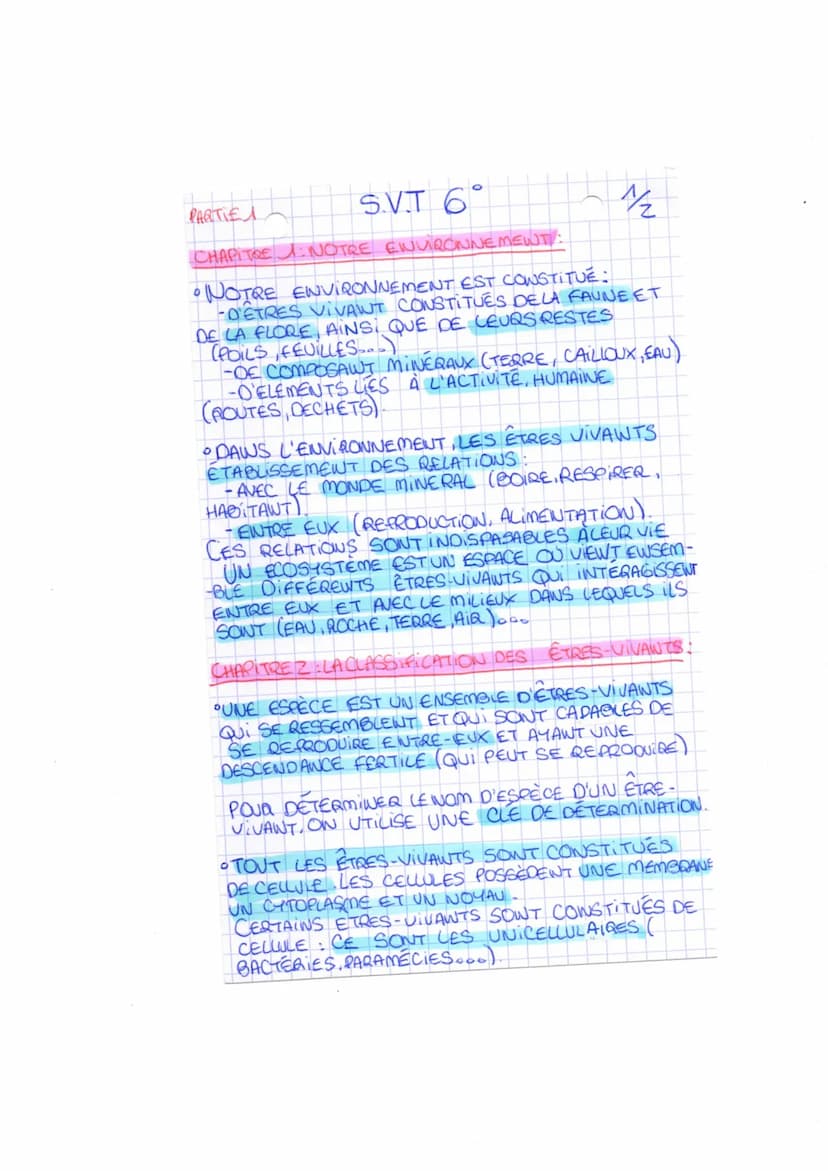 PARTIE 1 S.V.T 6° 1/2
CHAPITRE 1: NOTRE ENVIRONNEMENT:
• NOTRE ENVIRONNEMENT EST CONSTITUÉ:
-D'ÊTRES VIVANT CONSTITUÉS DE LA FAUNE ET
DE LA FLORE, AINSI QUE DE LEURS RESTES
(POILS, FEUILLES...)
-DE COMPOSANT MINÉRAUX (TERRE, CAILLOUX, EAU)
-D'ELEMENTS LIÉS À L'ACTIVITÉ, HUMAINE
(ROUTES, DECHETS).
• DANS L'ENVIRONNEMENT, LES ÊTRES VIVANTS
ÉTABLISSEMENT DES RELATIONS:
-AVEC LE MONDE MINERAL (BOIRE, RESPIRER,
HABITANT).
-ENTRE EUX (REPRODUCTION, ALIMENTATION).
CES RELATIONS SONT INDISPASABLES À LEUR VIE
UN ECOSYSTÈME EST UN ESPACE OÙ VIENT ENSEM-
-BLE DIFFÉRENTS ÊTRES-VIVANTS QUI INTÉRAGISSENT
ENTRE EUX ET AVEC LE MILIEUX DANS LEQUELS ILS
SONT (EAU, ROCHE, TERRE, AIR)...
CHAPITRE 2: LA CLASSIFICATION DES ÊTRES-VIVANTS:
• UNE ESPÈCE EST UN ENSEMBLE D'ÊTRES-VIVANTS
QUI SE RESSEMBLENT ET QUI SONT CAPABLES DE
SE REPRODUIRE ENTRE-EUX ET AYANT UNE
DESCENDANCE FERTILE (QUI PEUT SE REPRODUIRE)
POUR DÉTERMINER LE NOM D'ESPÈCE D'UN ÊTRE-
VIVANT, ON UTILISE UNE CLÉ DE DÉTERMINATION.
• TOUT LES ÊTRES-VIVANTS SONT CONSTITUÉS
DE CELLULE. LES CELLULES POSSÈDENT UNE MEMBRANE
UN CYTOPLASME ET UN NOYAU.
CERTAINS ETRES-VIVANTS SONT CONSTITUÉS DE
CELLULE: CE SONT LES UNICELLULAIRES (
BACTÉRIES, PARAMÉCIES...).